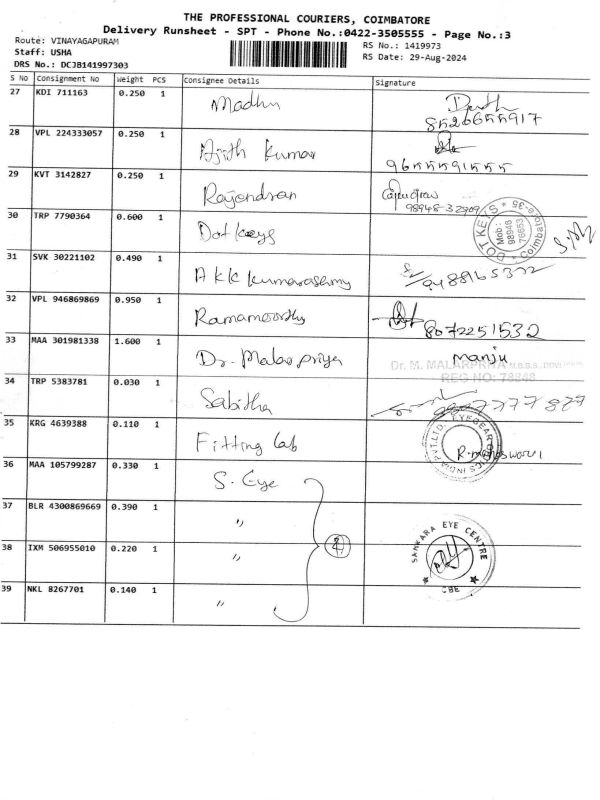 THE PROFESSIONAL COURIERS, COIMBATORE
Delivery Runsheet - SPT - Phone No.:0422-3505555 - Page No.:3
Route: VINAYAGAPURAM
RS No.: 1419973
Staff: USHA
RS Date: 29-Aug-2024
DRS No.: DCJB141997303
S No Consignment No Weight PCS Consignee Details Signature
27 KDI 711163 0.250 1 Madhu
8526655917
28 VPL 224333057 0.250 1 Ajith Kumar
9655591555
29 KVT 3142827 0.250 1 Rajendran
98948-32909
30 TRP 7790364 0.600 1 Dot keys
DOT KEYS Mob.: 98946 76653 Coimbatore-35
31 SVK 30221102 0.490 1 AKK Kumarasamy
32 VPL 946869869 0.950 1 Ramamoorthy
8072251532
33 MAA 301981338 1.600 1 Dr. Malarpriya manju
Dr. M. MALARPRIYA M.B.B.S.
REG NO: 78848
34 TRP 5383781 0.030 1 Sabitha
35 KRG 4639388 0.110 1 Fitting Lab
36 MAA 105799287 0.330 1 S. Eye
37 BLR 4300869669 0.390 1 "
38 IXM 506955010 0.220 1 "
4
SANKARA EYE CENTRE CBE
39 NKL 8267701 0.140 1 "